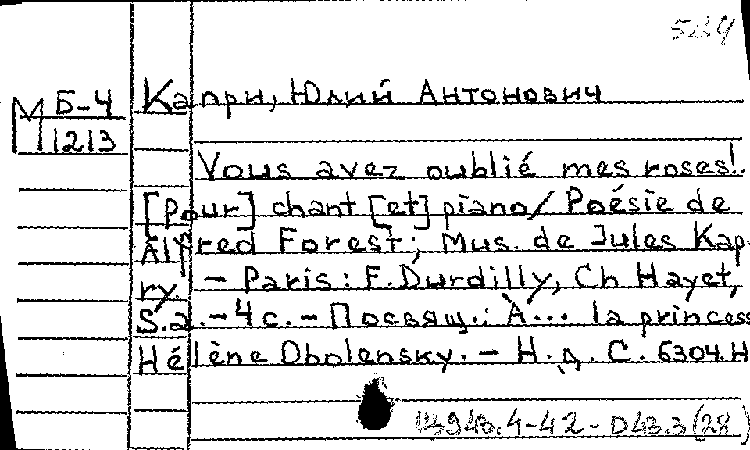 Б-4 Капри, Юлий Антонович
М 1213
Vous avez oublié mes roses!.
[pour] chant [et] piano/ Poésie de
Alfred Forest; Mus. de Jules Kap-
ry. – Paris: F. Durdilly, Ch Hayet,
S.a. – 4 с. – Посвящ.: À... la princess
Hélène Obolensky. – Н.д. С. 6304.H